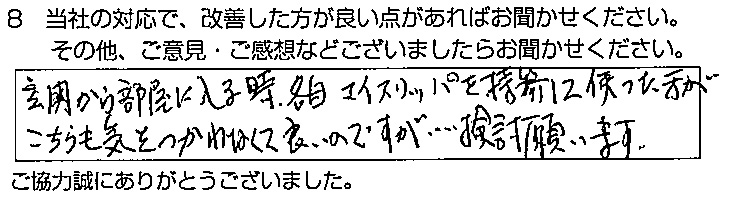 8 当社の対応で、改善した方が良い点があればお聞かせください。
その他、ご意見・ご感想などございましたらお聞かせください。
玄関から部屋に入る時、各自マイスリッパを持参して使った方が
こちらも気をつかわなくて良いのですが‥‥検討願います。
ご協力誠にありがとうございました。